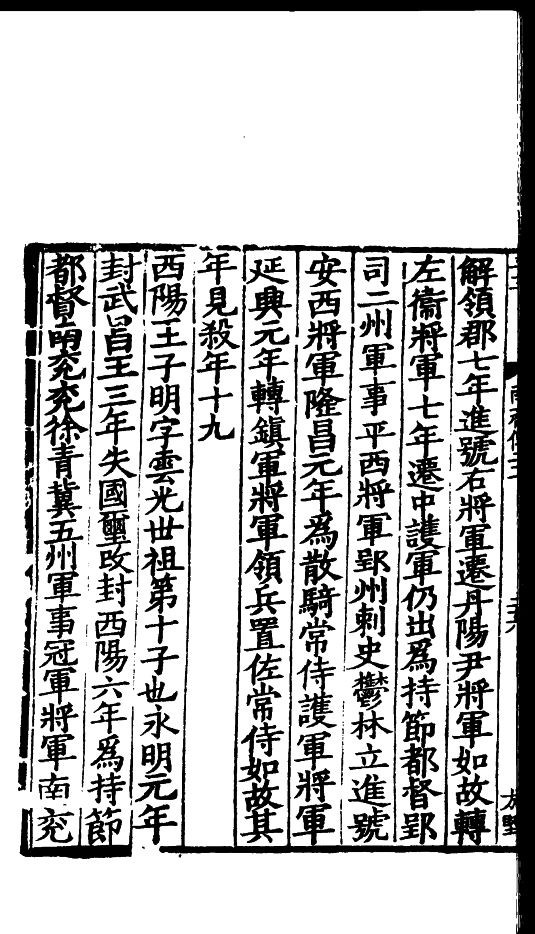 解領郡七年進號右將軍遷丹陽尹將軍如故轉
左衞將軍七年遷中護軍仍出爲持節都督郢
司二州軍事平西將軍郢州刺史鬱林立進號
安西將軍隆昌元年爲散騎常侍護軍將軍
延興元年轉鎮軍將軍領兵置佐常侍如故其
年見殺年十九
西陽王子明字雲光世祖第十子也永明元年
封武昌王三年失國璽改封西陽六年爲持節
都督南兗兗徐青冀五州軍事冠軍將軍南兗